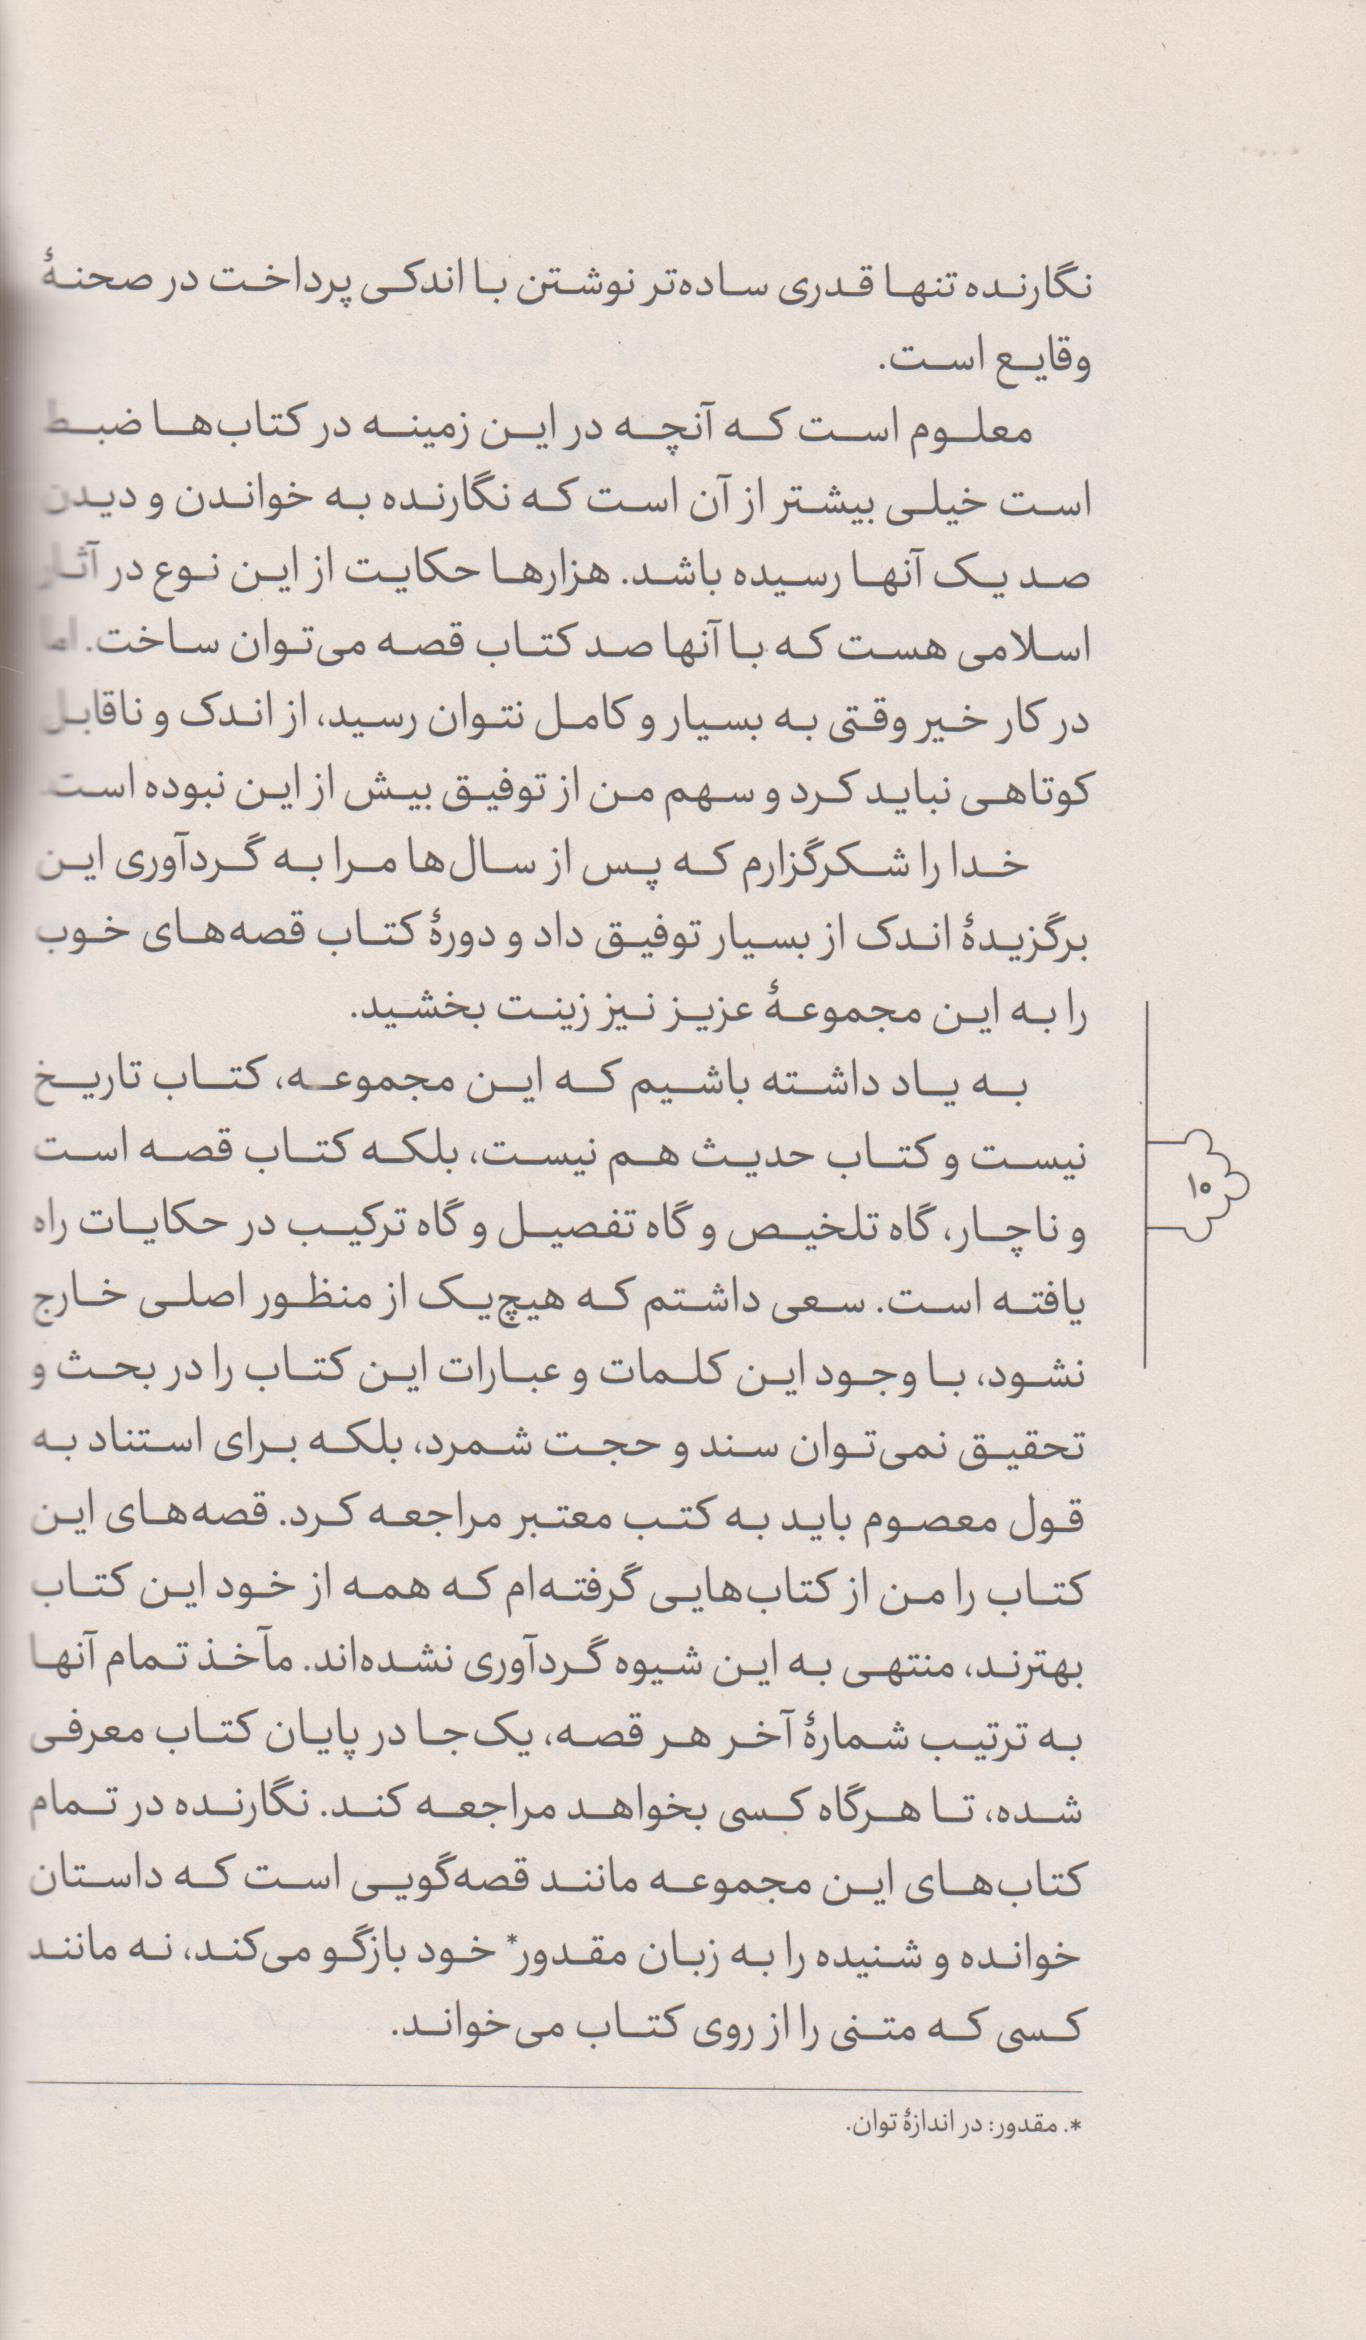 نگارنده تنها قدری ساده‌تر نوشتن با اندکی پرداخت در صحنهٔ
وقایع است.
معلوم است که آنچه در این زمینه در کتاب‌ها ضبط
است خیلی بیشتر از آن است که نگارنده به خواندن و دیدن
صد یک آنها رسیده باشد. هزارها حکایت از این نوع در آثار
اسلامی هست که با آنها صد کتاب قصه می‌توان ساخت. اما
در کار خیر وقتی به بسیار و کامل نتوان رسید، از اندک و ناقابل
کوتاهی نباید کرد و سهم من از توفیق بیش از این نبوده است.
خدا را شکرگزارم که پس از سال‌ها مرا به گردآوری این
برگزیدهٔ اندک از بسیار توفیق داد و دورهٔ کتاب قصه‌های خوب
را به این مجموعهٔ عزیز نیز زینت بخشید.
به یاد داشته باشیم که این مجموعه، کتاب تاریخ
نیست و کتاب حدیث هم نیست، بلکه کتاب قصه است
و ناچار، گاه تلخیص و گاه تفصیل و گاه ترکیب در حکایات راه
یافته است. سعی داشتم که هیچ‌یک از منظور اصلی خارج
نشود، با وجود این کلمات و عبارات این کتاب را در بحث و
تحقیق نمی‌توان سند و حجت شمرد، بلکه برای استناد به
قول معصوم باید به کتب معتبر مراجعه کرد. قصه‌های این
کتاب را من از کتاب‌هایی گرفته‌ام که همه از خود این کتاب
بهترند، منتهی به این شیوه گردآوری نشده‌اند. مآخذ تمام آنها
به ترتیب شمارهٔ آخر هر قصه، یک‌جا در پایان کتاب معرفی
شده، تا هرگاه کسی بخواهد مراجعه کند. نگارنده در تمام
کتاب‌های این مجموعه مانند قصه‌گویی است که داستان
خوانده و شنیده را به زبان مقدور* خود بازگو می‌کند، نه مانند
کسی که متنی را از روی کتاب می‌خواند.
*. مقدور: در اندازهٔ توان.
۱۰